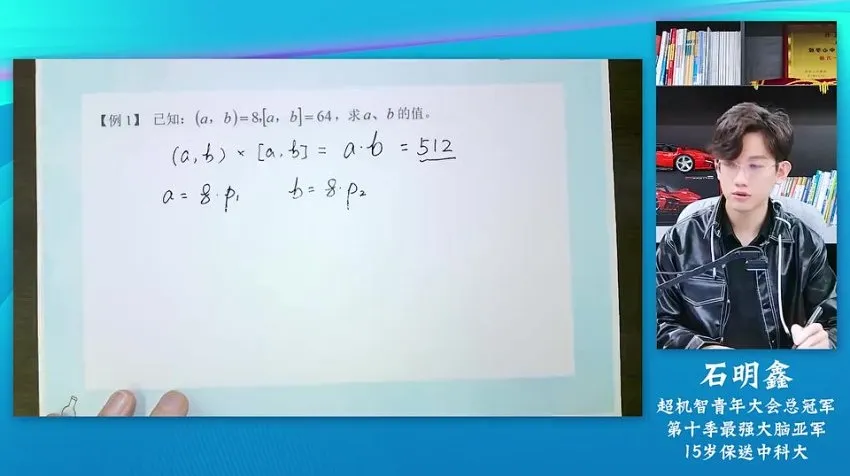 【例1】 已知：(a，b)=8,[a，b]=64，求a、b的值。
(a,b) × [a,b] = a·b = 512
a = 8·p₁ b = 8·p₂
石明鑫
超机智青年大会总冠军
第十季最强大脑亚军
15岁保送中科大